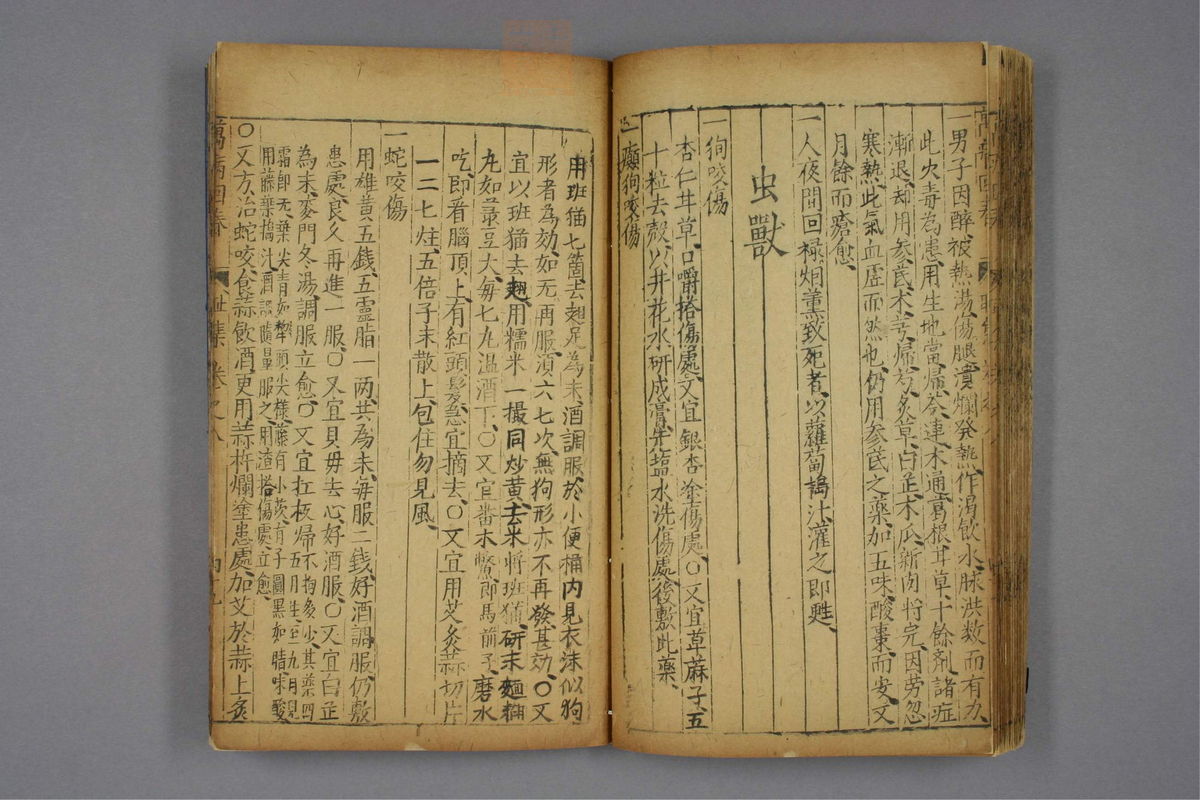 一男子因醉被熱湯傷腿潰爛發熱作渴飲水脉洪数而有力
此火毒為患用生地當歸芩連木通葛根甘草十餘劑諸症
漸退却用参芪术芍歸芍炙草白芷木瓜新肉将完因劳忽
寒熱此氣血虛而然也仍用参芪之藥加五味酸棗而安又
月餘而瘡愈
一人夜間回祿烟薰致死者以蘿蔔搗汁灌之即甦
虫獸
一狗咬傷
杏仁甘草口嚼搭傷處又宜銀杏塗傷處〇又宜草蔴子五
十粒去殼以井花水研成膏先塩水洗傷處後敷此藥
一癲狗咬傷
用班猫七箇去翅足為末酒調服於小便桶内見衣沫似狗
形者為効如无再服湏六七次無狗形亦不再發甚効〇又
宜以班猫去翅用糯米一撮同炒黄去米将班猫研末麵糊
九如菉豆大每七九温酒下〇又宜番木鱉即馬前子磨水
吃即看腦頂上有紅頭髮急宜摘去〇又宜用艾灸蒜切片
一二七炷五倍子末散上包住勿見風
一蛇咬傷
用雄黄五錢五靈脂一两共為末每服二錢好酒調服仍敷
患處良久再進一服〇又宜貝母去心好酒服〇又宜白芷
為末麥門冬湯調服立愈〇又宜扛板歸不拘多少其藥四五月生至九月見
霜即无葉尖青如犂頭尖樣藤有小茨有子圓黑如睛味酸
用藤葉搗汁酒調隨量服之用渣搭傷處立愈
〇又方治蛇咬食蒜飲酒更用蒜杵爛塗患處加艾於蒜上灸
萬病回春
卷之八